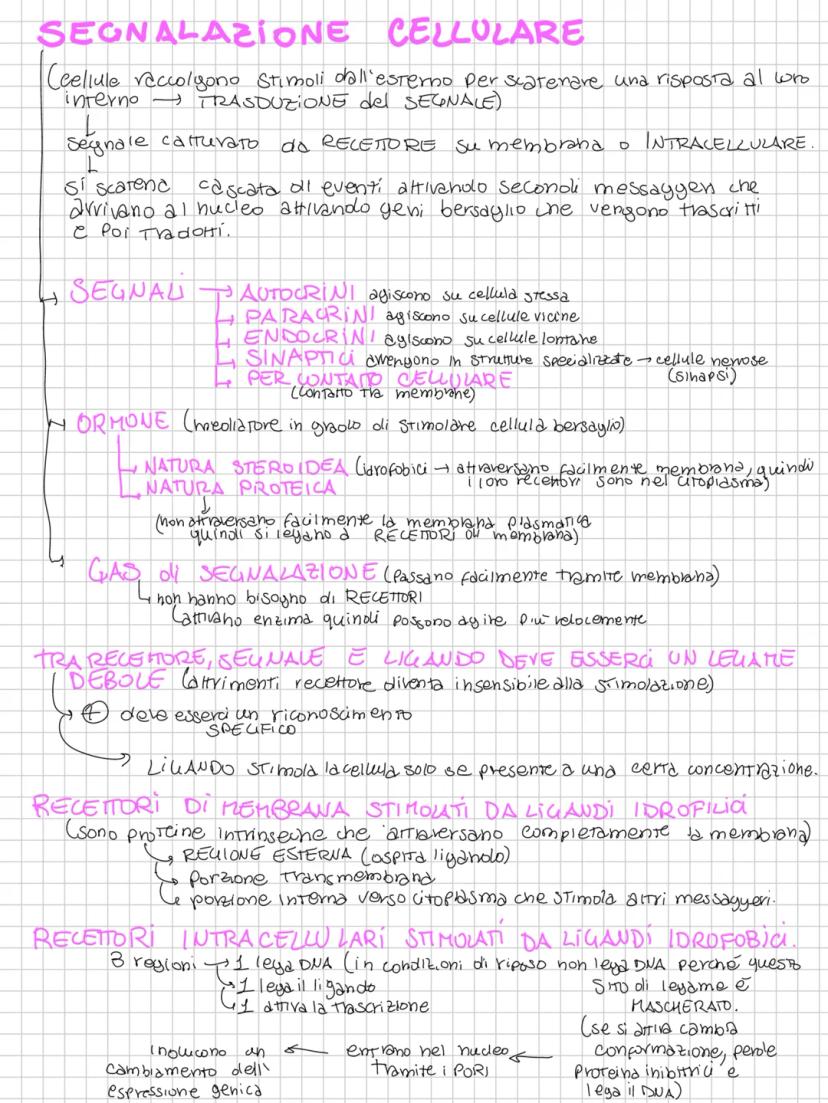 SEGNALAZIONE CELLULARE
(cellule raccolgono stimoli dall'esterno per scatenare una risposta al loro
interno → TRASDUZIONE del SEGNALE)
segnale catturato da RECETTORE su membrana o INTRACELLULARE.
si scatena cascata di eventi attivando secondi messaggeri che
arrivano al nucleo attivando geni bersaglio che vengono trascritti
e poi tradotti.
SEGNALI → AUTOCRINI agiscono su cellula stessa
PARACRINI agiscono su cellule vicine
ENDOCRINI agiscono su cellule lontane
SINAPTICI avvengono in strutture specializzate → cellule nervose
(sinapsi)
PER CONTATTO CELLULARE
(contatto tra membrane)
ORMONE (mediatore in grado di stimolare cellula bersaglio)
NATURA STEROIDEA (idrofobici → attraversano facilmente membrana, quindi
i loro recettori sono nel citoplasma)
NATURA PROTEICA
(non attraversano facilmente la membrana plasmatica
quindi si legano a RECETTORI di membrana)
GAS di SEGNALAZIONE (passano facilmente tramite membrana)
non hanno bisogno di RECETTORI
attivano enzima quindi possono agire più velocemente
TRA RECETTORE, SEGNALE E LIGANDO DEVE ESSERCI UN LEGAME
DEBOLE (altrimenti recettore diventa insensibile alla stimolazione)
+ deve esserci un riconoscimento
SPECIFICO
LIGANDO stimola la cellula solo se presente a una certa concentrazione.
RECETTORI DI MEMBRANA STIMOLATI DA LIGANDI IDROFILICI
(sono proteine intrinseche che attraversano completamente la membrana)
REGIONE ESTERNA (ospita ligando)
porzione transmembrana
porzione interna verso citoplasma che stimola altri messaggeri.
RECETTORI INTRACELLULARI STIMOLATI DA LIGANDI IDROFOBICI.
3 regioni → 1 lega DNA (in condizioni di riposo non lega DNA perché questo
sito di legame è
MASCHERATO.
1 lega il ligando
1 attiva la trascrizione
(se si attiva cambia
conformazione, perde
proteina inibitrici e
lega il DNA)
entrano nel nucleo
tramite i PORI
inducono un
cambiamento dell'
espressione genica